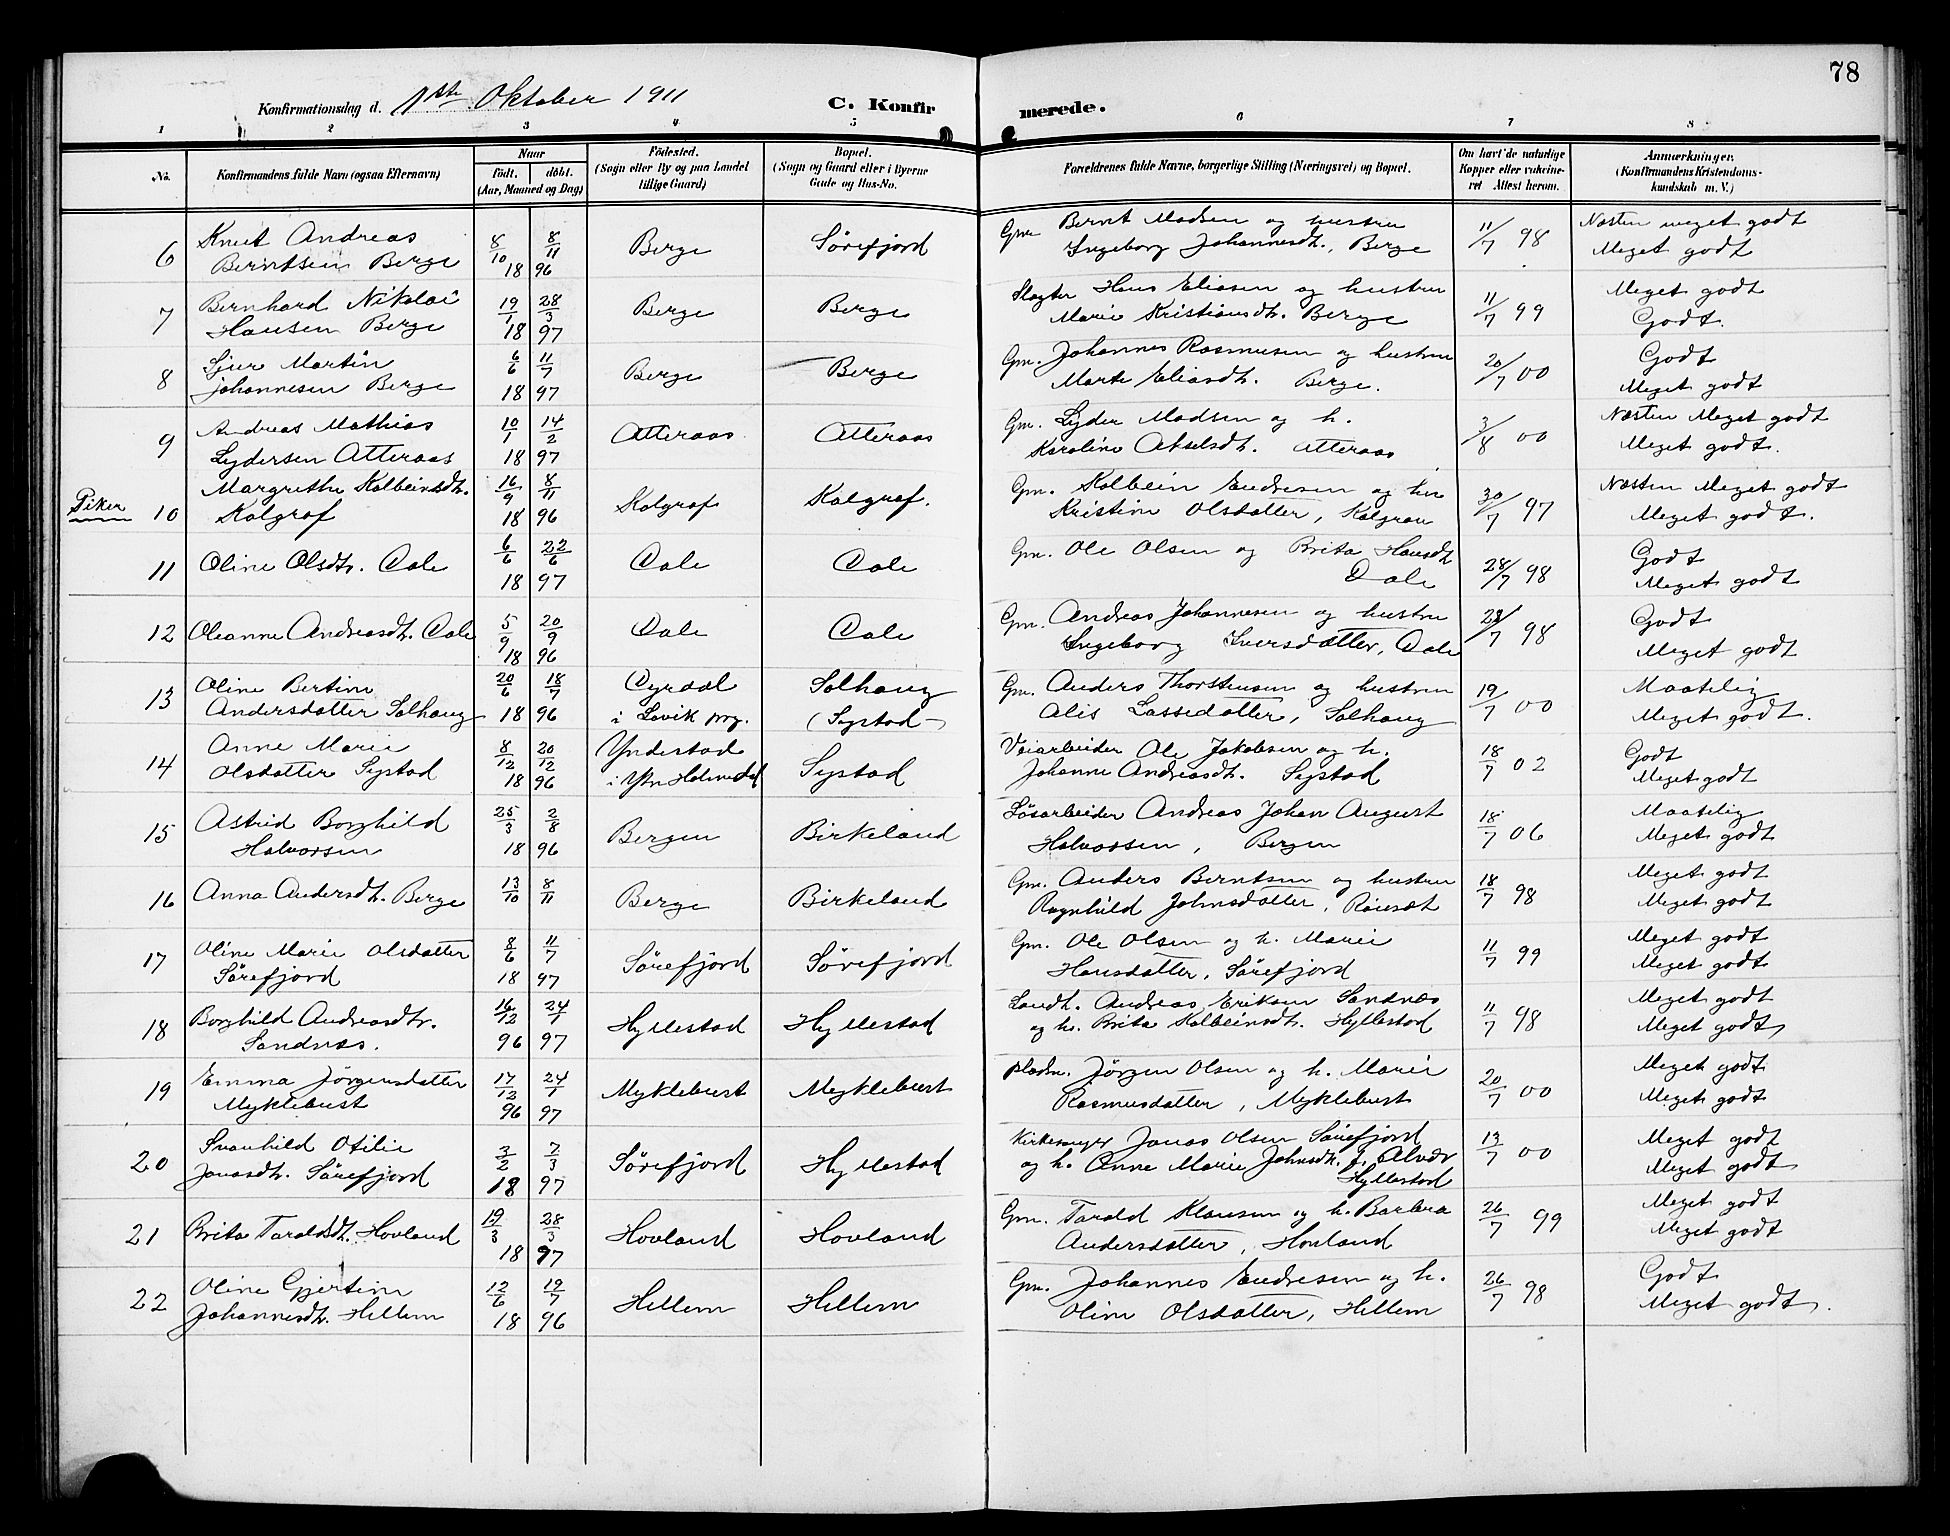 78
Konfirmationsdag d. 1ste Oktober 1911 C. Konfirmerede.
1 2 3 4 5 6 7 8
No. Konfirmandens fulde Navn (ogsaa Efternavn) Naar födt. döbt. (Aar, Maaned og Dag) Födested. (Sogn eller By og paa Landet tillige Gaard) Bopæl. (Sogn og Gaard eller i Byerne Gade og Hus-No. Forældrenes fulde Navne, borgerlige Stilling (Næringsvei) og Bopæl. Om havt de naturlige Kopper eller vaksineret Attest herom. Anmærkninger. (Konfirmandens Kristendomskundskab m. V.)
6 Knut Andreas 8/10 8/11 Berge Sörefjord Gm. Bernt Madsen og hustru 11/7 98 Næsten meget godt
Berntsen Berge 18 96 Ingeborg Johannesdt., Berge Meget godt
7 Bernhard Nikolai 19/1 28/3 Berge Berge Slagter Hans Eliasen og hustru 11/7 99 Meget godt
Hansen Berge 18 97 Marie Kristiansdt. Berge Godt.
8 Sjur Martin 6/6 11/7 Berge Berge Gm. Johannes Rasmusen og hustru 20/7 00 Godt
Johannesen Berge 18 97 Marte Eliasdt. Berge. Meget godt
9 Andreas Mathias 10/1 14/2 Atteraas Atteraas Gm. Lyder Madsen og h. 3/8 00 Næsten Meget godt
Lydersen Atteraas 18 97 Karoline Akselsdt. Atteraas Meget godt.
Piker
10 Margrethe Kolbeinsdt. 16/9 8/11 Kolgrof Kolgrof. Gm. Kolbein Endresen og hu 30/7 97 Næsten Meget godt
Kolgrof 18 96 Kristine Olsdatter, Kolgrav Meget godt.
11 Oline Olsdt. Dale 6/6 22/6 Dale Dale Gm. Ole Olsen og Brita Hansdt. 28/7 98 Godt
18 97 Dale Meget godt
12 Oleanne Andreasdt. Dale 5/9 20/9 Dale Dale Gm. Andreas Johannesen og hustru 28/7 98 Godt
18 96 Ingeborg Iversdatter, Dale Meget godt
13 Oline Bertine 20/6 18/7 Dyrdal Solhaug Gm. Anders Thorstensen og hustru 19/7 00 Maatelig
Andersdatter Solhaug 18 96 i Lavik prg. (Systad) Alis Lassedatter, Solhaug Meget godt.
14 Anne Marie 8/12 20/12 Yndestad Systad Veiarbeider Ole Jakobsen og h. 18/7 02 Godt
Olsdatter Systad 18 96 i Ytr. Holmedal Johanne Andreasdt. Systad Meget godt
15 Astrid Borghild 25/3 2/8 Bergen Birkeland Lösarbeider Andreas Johan August 18/7 06 Maatelig
Halvorsen 18 96 Halvorsen, Bergen Meget godt
16 Anna Andersdt. Berge 13/10 8/11 Berge Birkeland Gm. Anders Berntsen og hustru 18/7 98 Meget godt
Ragnhild Johnsdatter, Meget godt
17 Oline Marie Olsdatter 8/6 11/7 Sörefjord Sörefjord Gm. Ole Olsen og h. Marie 11/7 99 Meget godt
Sörefjord 18 97 Hansdatter, Sörefjord Meget godt
18 Borghild Andreasdtr. 16/12 24/1 Hyllestad Hyllestad Landh. Andreas Eriksen Sandnæs 11/7 98 Meget godt
Sandnæs. 96 97 og h. Brita Kolbeinsdt. Hyllestad Meget godt
19 Emma Jörgensdatter 17/12 24/1 Myklebust Myklebust Pladsm. Jörgen Olsen og h. Marie 20/7 00 Meget godt
Myklebust 96 97 Rasmusdatter, Myklebust Meget godt
20 Svanhild Otilie 3/2 7/3 Sörefjord Hyllestad Kirkesanger Jonas Olsen Sörefjord 13/7 00 Meget godt
Jonasdt. Sörefjord 18 97 og h. Anne Marie Johnsdt. f. Alvær Meget godt
Hyllestad
21 Brita Taraldsdt. Hovland 19/3 28/3 Hovland Hovland Gm. Tarald Klausen og h. Barbra 26/7 99 Meget godt
18 97 Andersdatter, Hovland Meget godt
22 Oline Gjertine 12/6 19/7 Hellem Hellem Gm. Johannes Endresen og h. 26/7 98 Godt
Johannesdt. Hellem 18 96 Oline Olsdatter, Hellem Meget godt.